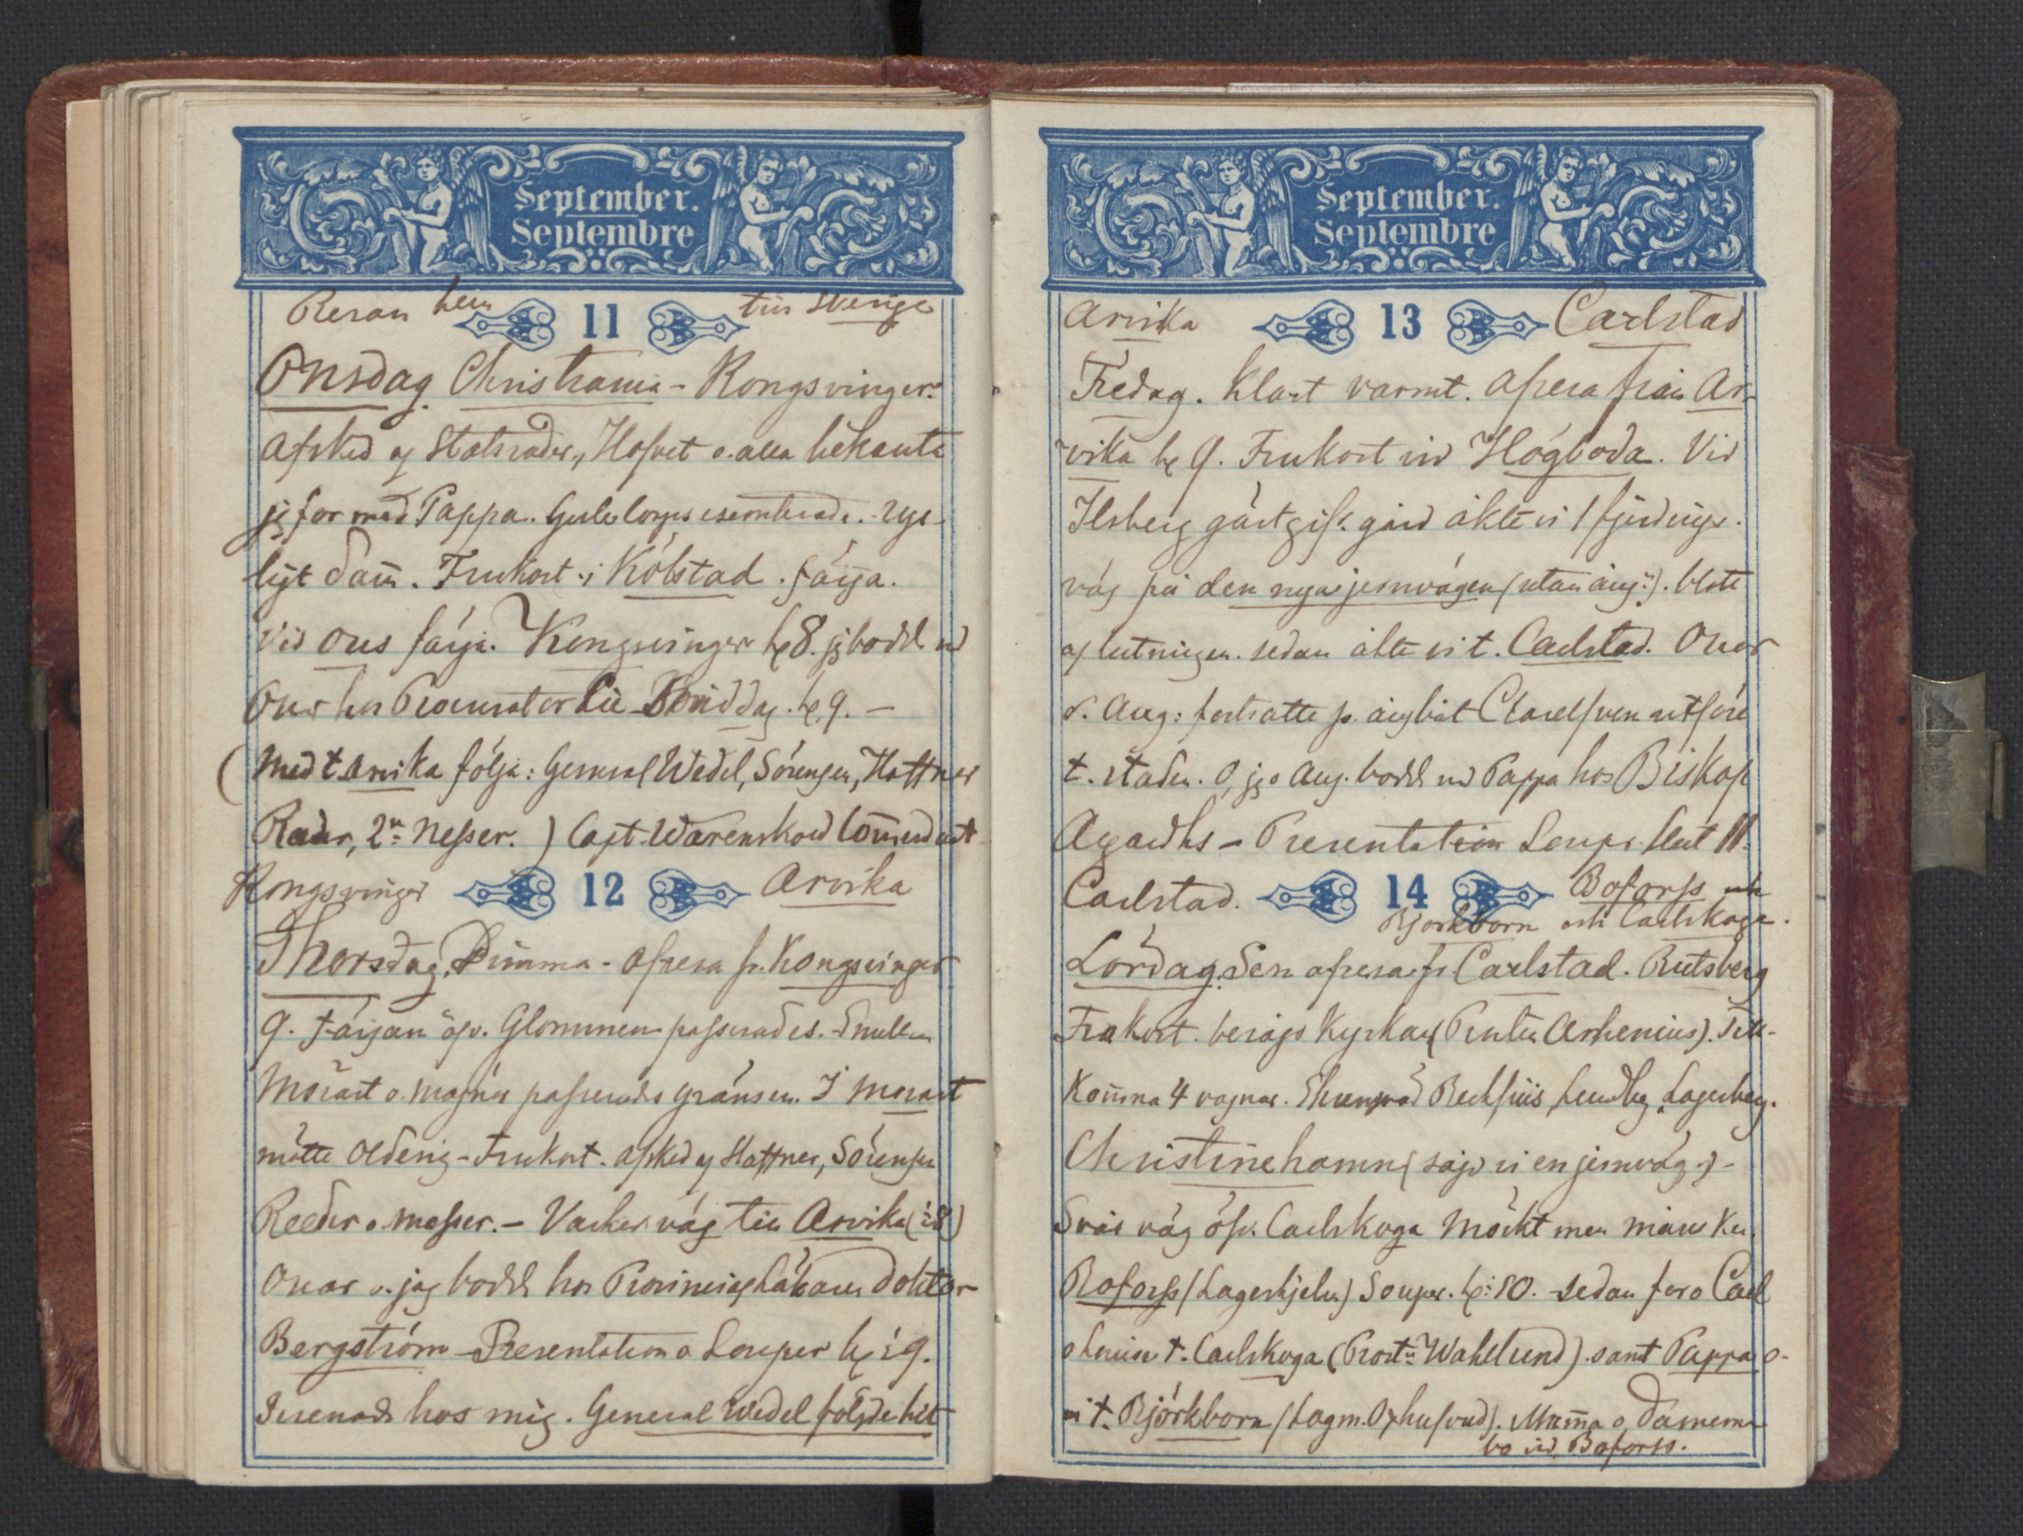 September.
Septembre
Resan hem 11 till Sverige
Onsdag Christiania - Kongsvinger.
Afsked af Statsråder, Hofvet o. alla bekanta
jg for med Pappa. Gulecorps esconterade. Rys-
ligt dam. Frukost i Kölstad. färja.
Vid Ous färja. Kongsvinger kl 8. jg bodde m
Onar hos Procurator Lie Middag. kl. 9. —
(Med t. Arvika följa: General Wedel, Sörensen, Haffner
Ræder, 2ne Nesser.) Capt. Wærenskold
Kongsvinger 12 Arvika
Thorsdag, Dimma - afresa fr. Kongsvinger
9. Färjan öfv. Glommen passerades. Emellan
Morast o. Magnor passerades gränsen. I Morast
mötte Oldenig - Frukost. afsked af Haffner, Sörensen
Reeder o. Messer. - Vacker väg till Arvika (: 8)
Onar o. jag bodde hos Provincial Läkaren Doktor
Bergström - Presentation o Souper kl : 9.
Serenad hos mig. General Wedel följde hit
September.
Septembre
Arvika 13 Carlstad
Fredag. Klart varmt. Afresa från Ar-
vika kl 9. Frukost vid Högboda. Vid
Ilsberg gästgif. gård åkte vi 1 fjerdings.
väg på den nya jernvägen (utan äng:). blott
af lutningen. sedan åkte vi t. Carlstad. Onar
o. Aug: fortsatte p. ångbåt Clarelfven utför
t. staden. O, jg o Aug. bodde m Pappa hos Biskop
Agardhs - Presentation Soupe. slut 11.
Carlstad. 14 Boforss och
Björkborn och Carlskoga.
Lördag. Sen afresa fr Carlstad. Rutsberg
Frukost. besågs Kyrkan (Prosten Arhenius). Till-
komma 4 vagnar. Ehrengrad Beckfriis, Lundbg, Lagerberg.
Christinehamn (sågo vi en jernväg.) -
Svår väg öfv. Carlskoga Mörkt men månsken.
Boforss (Lagerhjelm) Souper. kl: 10. sedan foro Carl
o Louise t. Carlskoga (Prostn Wahlund) samt Pappa o-
vi t. Björkborn (Lagm. Oxhufvud). Mamma o Damerna
bo vid Boforss.